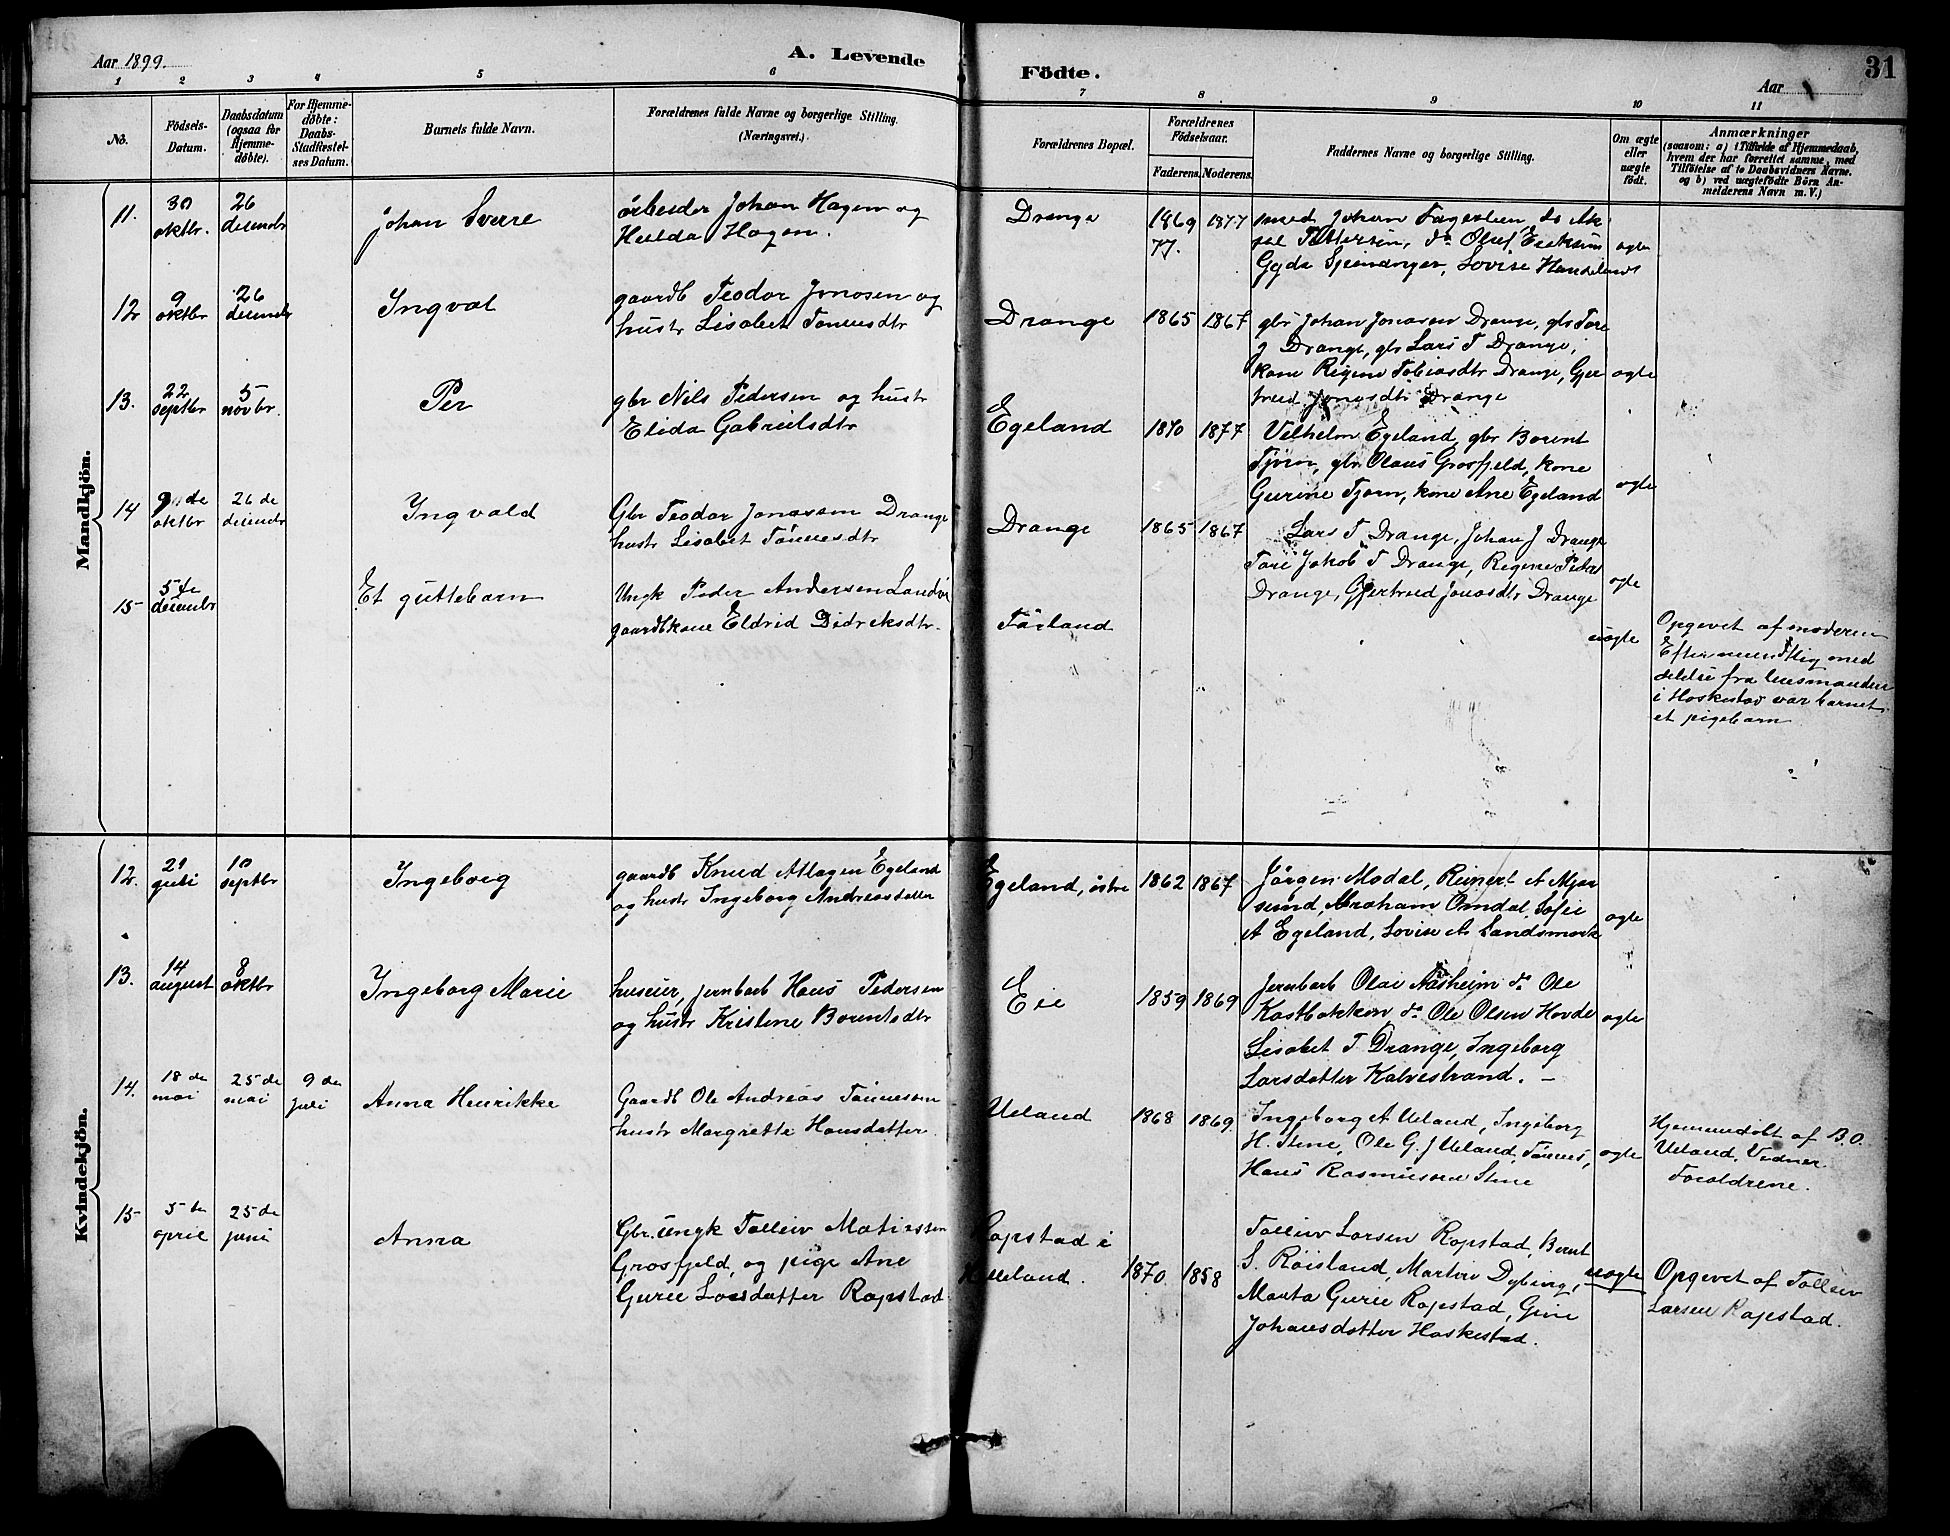 Aar 1899.
A. Levende
Födte.
Aar
31
1 2 3 4 5 6 7 8 9 10 11
No.
Födsels-Datum.
Daabsdatum (ogsaa for Hjemmedøbte).
For Hjemmedøbte: Daabs-Stadfæstelses Datum.
Barnets fulde Navn.
Forældrenes fulde Navne og borgerlige Stilling. (Næringsvei.)
Forældrenes Bopæl.
Forældrenes Födselsaar.
Faderens. Moderens.
Faddernes Navne og borgerlige Stilling.
Om ægte eller uægte født.
Anmærkninger
(saasom: a) i Tilfælde af Hjemmedaab,
hvem der har forrettet samme, med
Tilföielse af to Daabsvidners Navne.
og b) ved uægtefödte Börn An-
melderens Navn m. V.)
Mandkjön.
11. 30 oktbr. 26 decembr Johan Sverre
arbeider Johan Hagen og
Hulda Hagen.
Drange 1869 77. 1877
Johan Fagerlien, do Ak
sel Pettersen, do Oluf Eriksen
Gyda
Lovise
ægte
12 9 oktbr 26 decembr Ingval
gaardb Teodor Jonasen og
hustr Lisabet Tønnesdtr
Drange 1865 1867
gbr Johan Jonasen Drange, gbr Tore
J Drange, gbr Lars T Drange,
kone Regine Tobiasdtr Drange, Gjer
trud Jonasdtr Drange
ægte
13. 22 septbr 5 novbr. Per
gbr Nils Pedersen og hustr
Elida Gabrielsdtr
Egeland 1870 1877
Vilhelm Egeland, gbr Borent
Tjörn, gbr Olaus Grosfjeld, kone
Gurine Tjörn, kone Ane Egeland
ægte
14 9de oktbr 26 de decembr Ingvald
Gbr Teodor Jonassen Drange
hustr Lisabet Tönnesdtr
Drange 1865 1867
Lars T Drange, Johan J Drange
Tore Jakob T Drange, Regine
Drange, Gjertrud Jonasdtr Drange
ægte
15 5te decembr Et guttebarn
Ungk Peder Andersen
gaardbkone Eldrid Didreksdtr.
uægte
Opgevet af moderen
Efter mundtlig med
delelse fra lensmanden
i Heskestad var barnet
et pigebarn
Kvindekjön.
12. 21 juli 10 septbr Ingeborg
gaardb Knud Atlagen Egeland
og hustr Ingeborg Andreasdatter
Egeland, östre 1862 1867
Jörgen Modal, Reinert A Mjør
sund, Abraham Omdal, Sofie
A Egeland, Lovise A Landsmark
ægte
13. 14 august 8 oktbr Ingeborg Marie
huseier, jernbarb Hans Pedersen
og hustr Kristine Borentsdtr
Eie 1859 1869
Jernbarb Olai Aasheim do Ole
Kastbakken, do Ole Olsen Hovde
Lisabet T Drange, Ingeborg
Larsdatter Kalvestrand. –
ægte
14. 18 de mai 25 de mai 9 de juli Anna Henrikke
Gaardb Ole Andreas Tönnesen
hustr Margrette Hansdatter.
Ueland 1868 1869
Ingeborg A Ueland, Ingeborg
H. Stene, Ole G. J Ueland, Tönnes,
Hans Rasmussen Stene
ægte
Hjemmedöbt af B.O.
Ueland, Vidner
Forældrene.
15 5te april 25 de juni Anna
Gbr. ungk Tolleiv Matiassen
Grosfjeld, og pige Ane
Gurie Larsdatter Rapstad
Rapstad i
Helleland. 1870. 1858
Tolleiv Larsen Rapstad, Bernt
S. Röisland, Martin Dybing,
Marta Gurie Rapstad, Gine
Johannesdatter Heskestad.
uægte
Opgevet af Tolleiv
Larsen Rapstad.